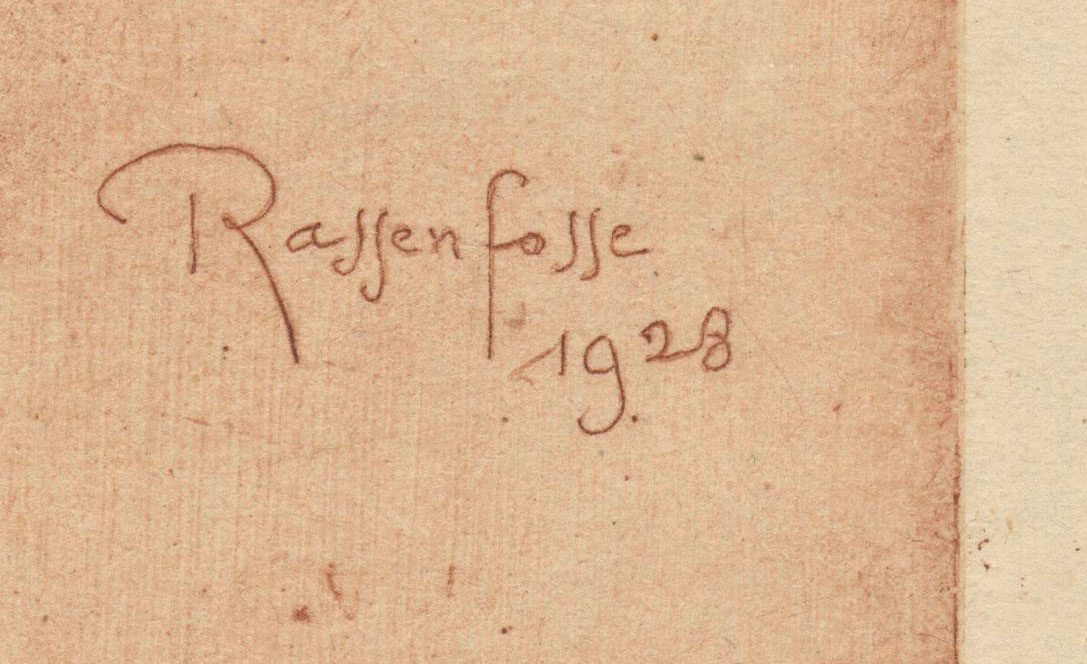 Rassenfosse
1928